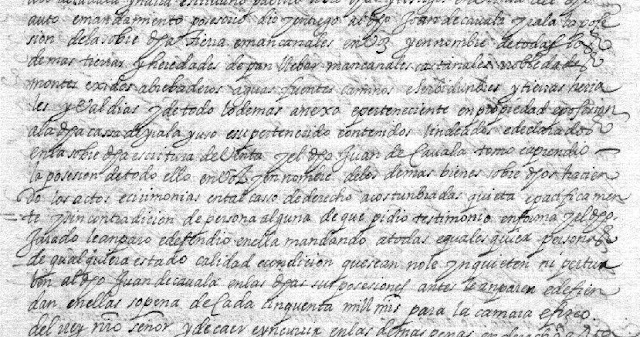 auto emandamento posesorio dio y entrego al dho Joan de cavala y ala la pose
sion de la sobre dha tierra emancanales en boz y en nombre de todas lo
demas tierras y heredades de pan llebar mancanales castanales robledales
montes exidos abrebaderos aguas fuentes caminos serbidumbres y tierras heria
les y baldias y de todo lo demas anexo e perteneciente en propiedad e posesion
a la dha casa de yala yuso e su pertenecido contenidos lindeados e declarados
en la sobre dha escritura de benta y el dho Juan de Cavala tomo e aprendio
la posesion de todo ello en boz y en nombre de los demas bienes sobre dhos hacien
do los actos e cirimonias en tal caso de derecho acostunbradas quieta e pacificamen
te y sin contradicion de persona alguna de que pidio testimonio en forma y el dho
Jurado le anparo e defendio en ella mandando a todas e quales quier personas
de qualquiera estado calidad e condicion que sean no le ynquieten ni pertur
ben al dho Juan de cavala en las dhas sus posesiones antes le anparen e defien
dan en ellas so pena de cada cinquenta mill mrs para la camara e fisco
del rey nro señor y de caer e yncurrir en las demas penas en derecho